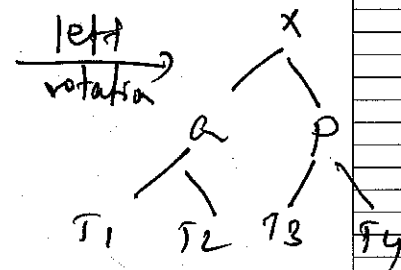 left
rotation
x
a
p
T1 T2 T3 T4